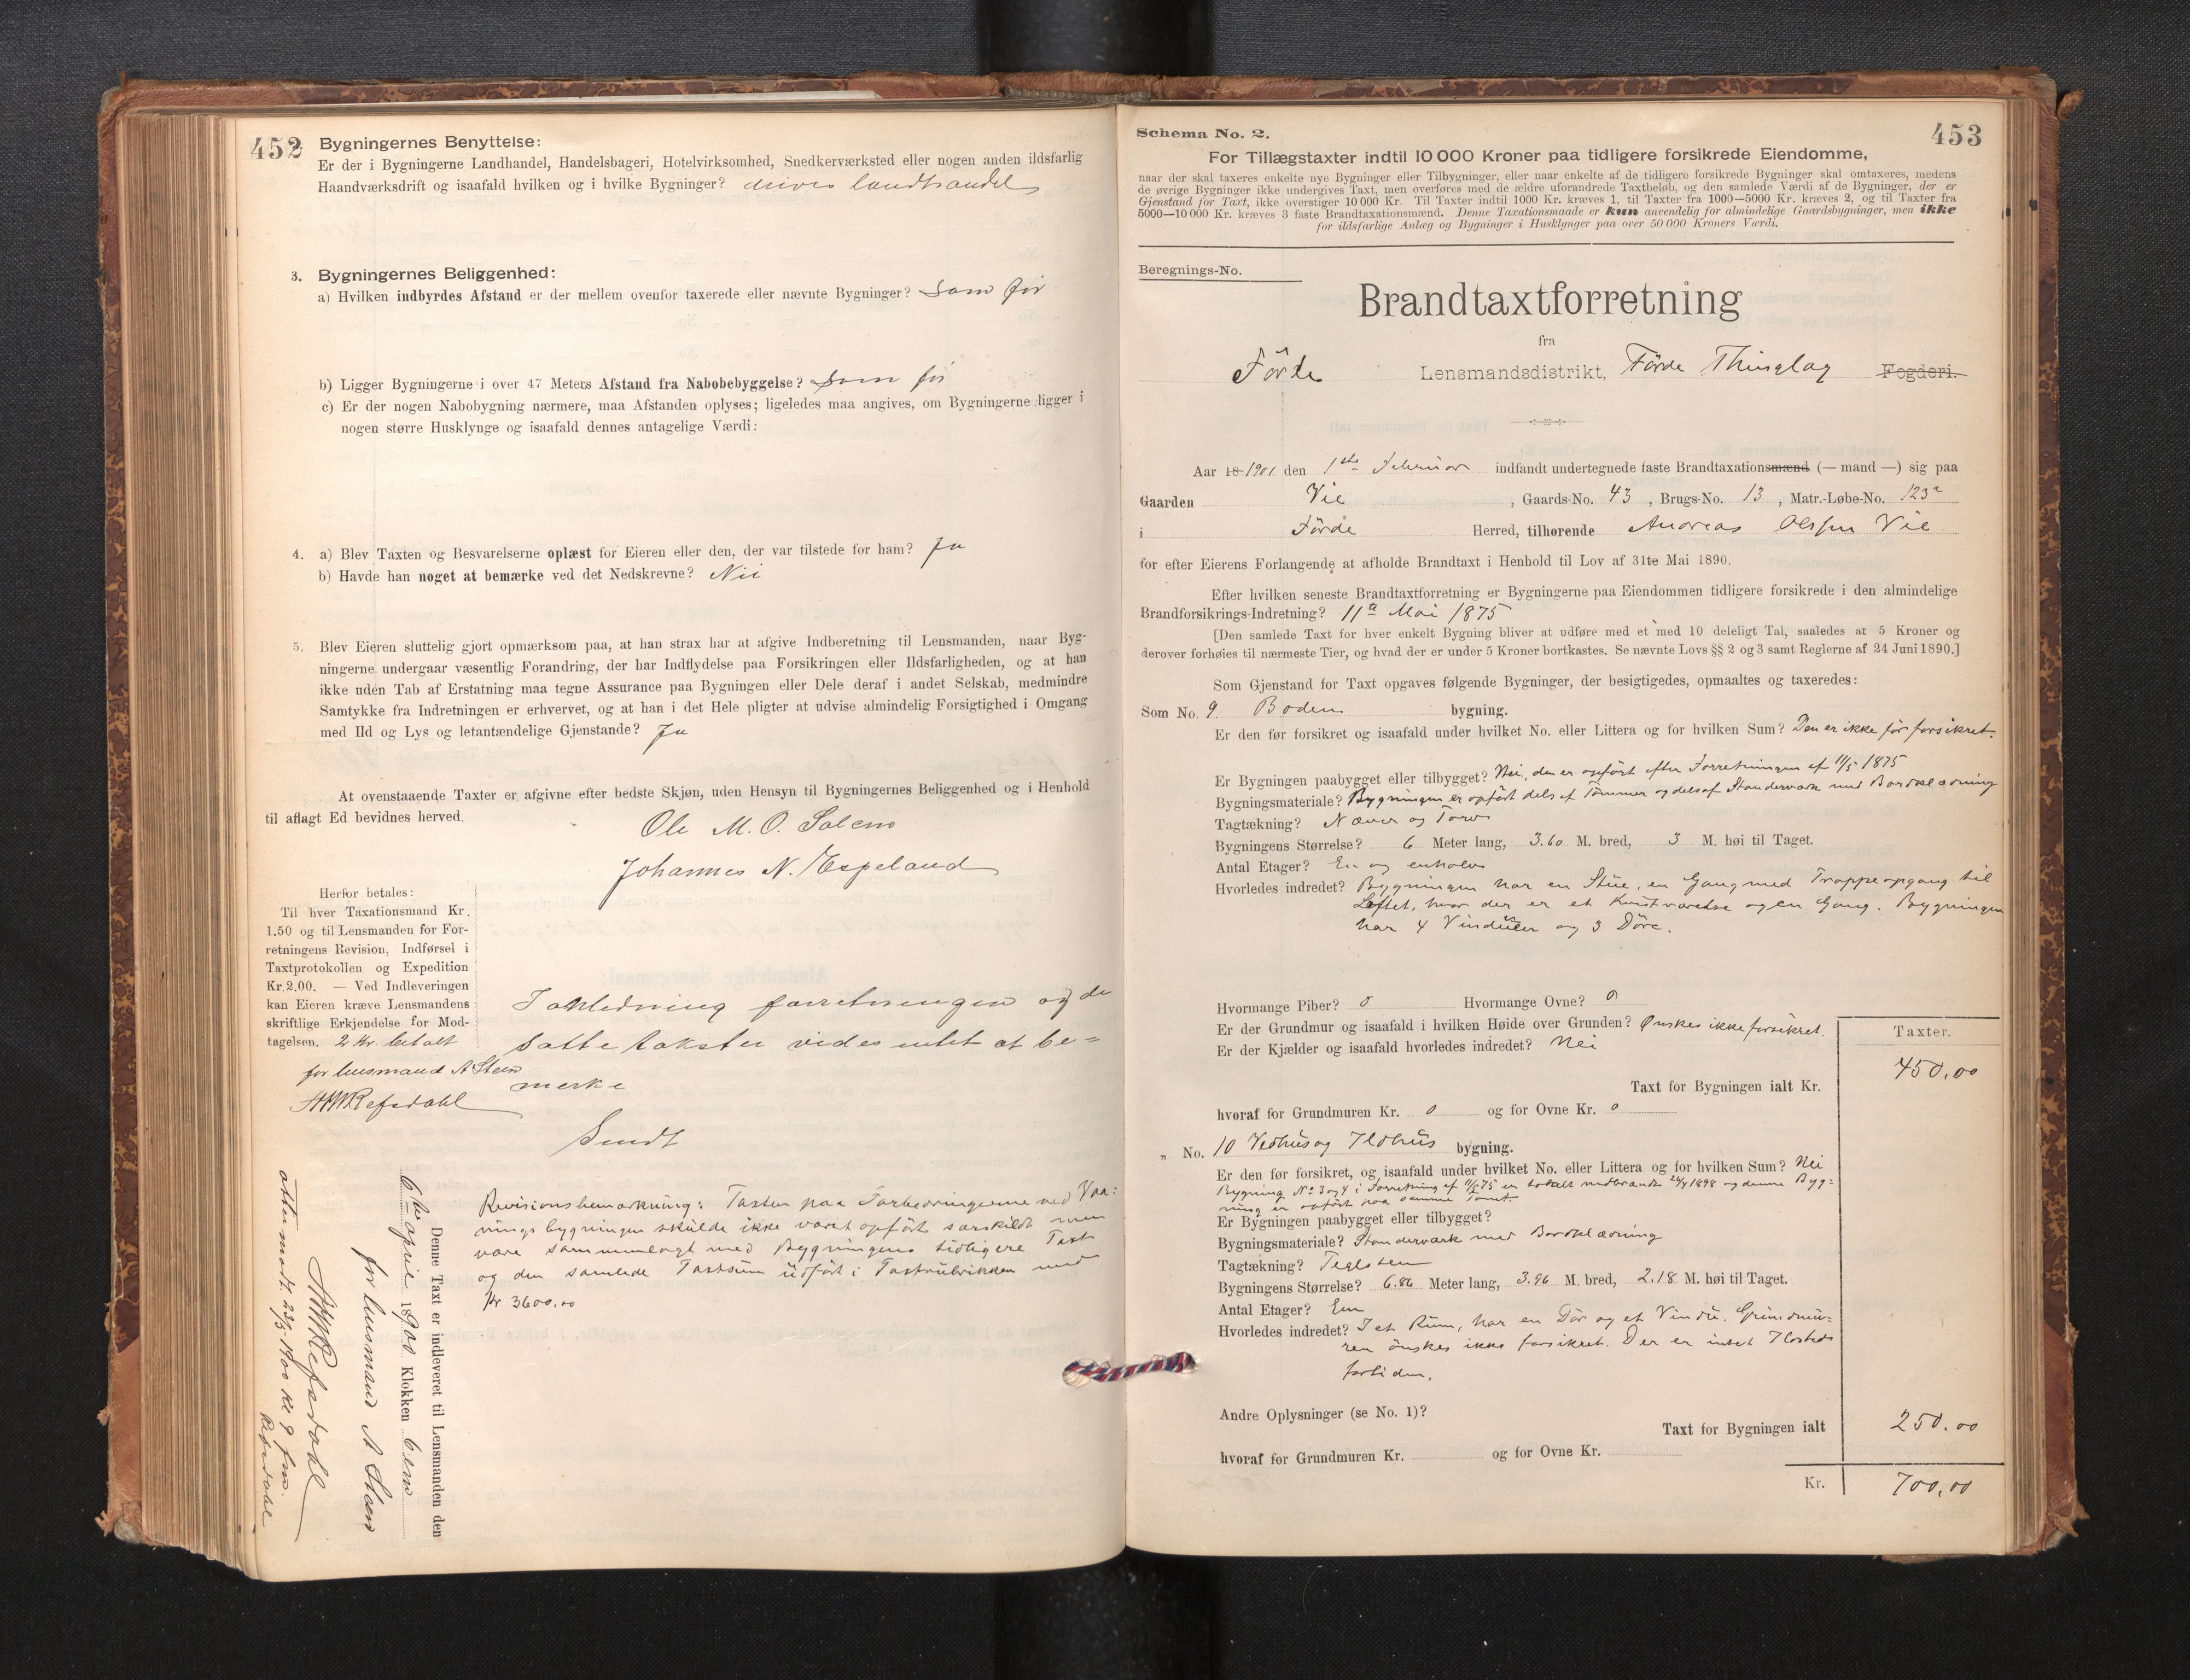 452
Bygningernes Benyttelse:
Er der i Bygningerne Landhandel, Handelsbageri, Hotelvirksomhed, Snedkerværksted eller nogen anden ildsfarlig
Haandværksdrift og isaafald hvilken og i hvilke Bygninger? drives landhandel
3. Bygningernes Beliggenhed:
a) Hvilken indbyrdes Afstand er der mellem ovenfor taxerede eller nævnte Bygninger? Som før
b) Ligger Bygningerne i over 47 Meters Afstand fra Nabobebyggelse? Som før
c) Er der nogen Nabobygning nærmere, maa Afstanden oplyses; ligeledes maa angives, om Bygningerne ligger i
nogen større Husklynge og isaafald dennes antagelige Værdi:
4. a) Blev Taxten og Besvarelserne oplæst for Eieren eller den, der var tilstede for ham? Ja
b) Havde han noget at bemærke ved det Nedskrevne? Nei
5. Blev Eieren sluttelig gjort opmærksom paa, at han strax har at afgive Indberetning til Lensmanden, naar Byg-
ningerne undergaar væsentlig Forandring, der har Indflydelse paa Forsikringen eller Ildsfarligheden, og at han
ikke uden Tab af Erstatning maa tegne Assurance paa Bygningen eller Dele deraf i andet Selskab, medmindre
Samtykke fra Indretningen er erhvervet, og at han i det Hele pligter at udvise almindelig Forsigtighed i Omgang
med Ild og Lys og letantændelige Gjenstande? Ja
At ovenstaaende Taxter er afgivne efter bedste Skjøn, uden Hensyn til Bygningernes Beliggenhed og i Henhold
til aflagt Ed bevidnes herved.
Ole M. O.
Johannes N. Espeland
Herfor betales:
Til hver Taxationsmand Kr.
1.50 og til Lensmanden for For-
retningens Revision, Indførsel i
Taxtprotokollen og Expedition
Kr. 2.00. — Ved Indleveringen
kan Eieren kræve Lensmandens
skriftlige Erkjendelse for Mod-
tagelsen. 2 Kr. betalt
for lensmand A Steen
Refsdahl
I anledning forretningen og de
satte takster vides intet at be-
merke
Sundt
Revisionsbemærkning: Taxten paa Forbedringerne ved Vaa-
ningsbygningen skulde ikke været opført særskildt men
være sammenlagt med Bygningens tidligere Taxt
og den samlede Taxtsum udført i Taxtrubrikken med
Kr 3600.00
Denne Taxt er indleveret til Lensmanden den
6te april 1900 Klokken 6 em
for lensmand A Steen
Refsdahl
atter modt. 23/5-1900 Kl 9 fm.
Refsdahl
453
Schema No. 2.
For Tillægstaxter indtil 10 000 Kroner paa tidligere forsikrede Eiendomme,
naar der skal taxeres enkelte nye Bygninger eller Tilbygninger, eller naar enkelte af de tidligere forsikrede Bygninger skal omtaxeres, medens
de øvrige Bygninger ikke undergives Taxt, men overføres med de ældre uforandrede Taxtbeløb, og den samlede Værdi af de Bygninger, der er
Gjenstand for Taxt, ikke overstiger 10 000 Kr. Til Taxter indtil 1000 Kr. kræves 1, til Taxter fra 1000—5000 Kr. kræves 2, og til Taxter fra
5000—10 000 Kr. kræves 3 faste Brandtaxationsmænd. Denne Taxationsmaade er kun anvendelig for almindelige Gaardsbygninger, men ikke
for ildsfarlige Anlæg og Bygninger i Husklynger paa over 50 000 Kroners Værdi.
Beregnings-No.
Brandtaxtforretning
fra
Förde Lensmandsdistrikt, Förde Thinglag Fogderi.
Aar 18 1901 den 1ste Februar indfandt undertegnede faste Brandtaxationsmænd (— mand —) sig paa
Gaarden Vie, Gaards-No. 43, Brugs-No. 13, Matr.-Løbe-No. 123a
i Förde Herred, tilhørende Andreas Olssen Vie
for efter Eierens Forlangende at afholde Brandtaxt i Henhold til Lov af 31te Mai 1890.
Efter hvilken seneste Brandtaxtforretning er Bygningerne paa Eiendommen tidligere forsikrede i den almindelige
Brandforsikrings-Indretning? 11te Mai 1875
[Den samlede Taxt for hver enkelt Bygning bliver at udføre med et med 10 deleligt Tal, saaledes at 5 Kroner og
derover forhøies til nærmeste Tier, og hvad der er under 5 Kroner bortkastes. Se nævnte Lovs §§ 2 og 3 samt Reglerne af 24 Juni 1890.]
Som Gjenstand for Taxt opgaves følgende Bygninger, der besigtigedes, opmaaltes og taxeredes:
Som No. 9. Boden bygning.
Er den før forsikret og isaafald under hvilket No. eller Littera og for hvilken Sum? Den er ikke før forsikret.
Er Bygningen paabygget eller tilbygget? Nei, den er opført efter Forretningen af 11/5 1875
Bygningsmateriale? Bygningen er opført dels af Tømmer og dels af Standerværk med Bordklædning
Tagtækning? Næver og Torv
Bygningens Størrelse? 6 Meter lang, 3.60 M. bred, 3 M. høi til Taget.
Antal Etager? En og enhalv
Hvorledes indredet? Bygningen har en Stue, en Gang med Trappeopgang til
Loftet, hvor der er et Kvistværelse og en Gang. Bygningen
har 4 Vinduer og 3 Döre.
Hvormange Piber? 0 Hvormange Ovne? 0
Er der Grundmur og isaafald i hvilken Høide over Grunden? Ønskes ikke forsikret.
Er der Kjælder og isaafald hvorledes indredet? Nei
Taxter.
Taxt for Bygningen ialt Kr. 450.00
hvoraf for Grundmuren Kr. 0 og for Ovne Kr. 0
„ No. 10 Vedhus og Ildhus bygning.
Er den før forsikret, og isaafald under hvilket No. eller Littera og for hvilken Sum? Nei
Bygning No 3 og 4 i Forretning af 11/5 75 er totalt nedbrændt 24/9 1898 og denne Byg-
ning er opført paa samme Tomt
Er Bygningen paabygget eller tilbygget?
Bygningsmateriale? Standerværk med Bordklædning
Tagtækning? Teglsten
Bygningens Størrelse? 6.86 Meter lang, 3.96 M. bred, 2.18 M. høi til Taget.
Antal Etager? Een
Hvorledes indredet? I et Rum, har en Dör og et Vindu. Grundmu-
ren önskes ikke forsikret. Der er intet Ildsted
fortiden.
Andre Oplysninger (se No. 1)?
Taxt for Bygningen ialt 250.00
hvoraf for Grundmuren Kr. og for Ovne Kr.
Kr. 700.00